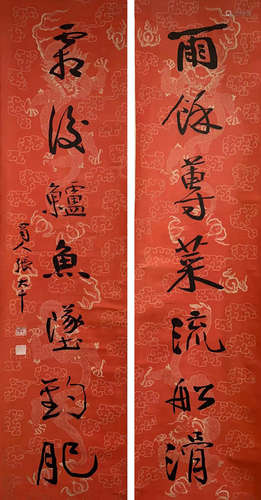 雨餘蓴菜流船滑
霜後鱸魚墜釣肥
蜀人張大千